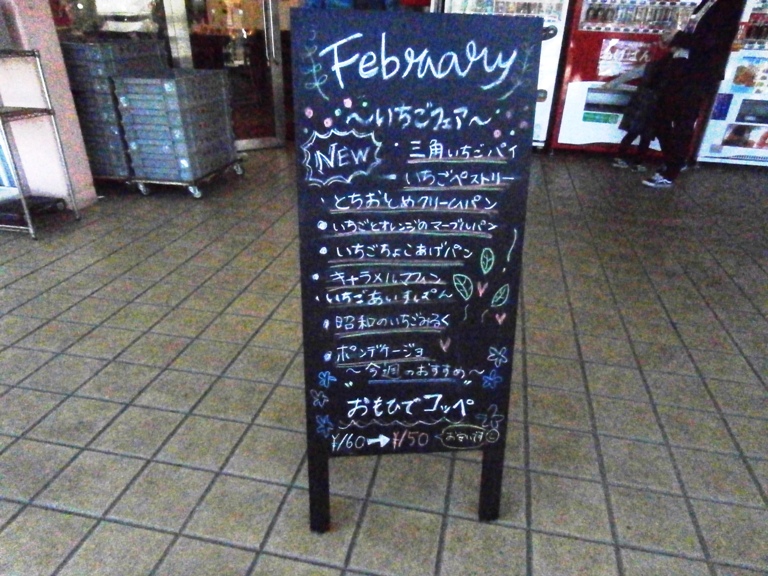 February
～いちごフェア～
NEW
・三角いちごパイ
・いちごペストリー
・とちおとめクリームパン
・いちごとオレンジのマーブルパン
・いちごちょこあげパン
・キャラメルマフィン
・いちごあいすぱん
・昭和のいちごみるく
・ポンデケージョ
～今週のおすすめ～
おもひでコッペ
¥160→¥150